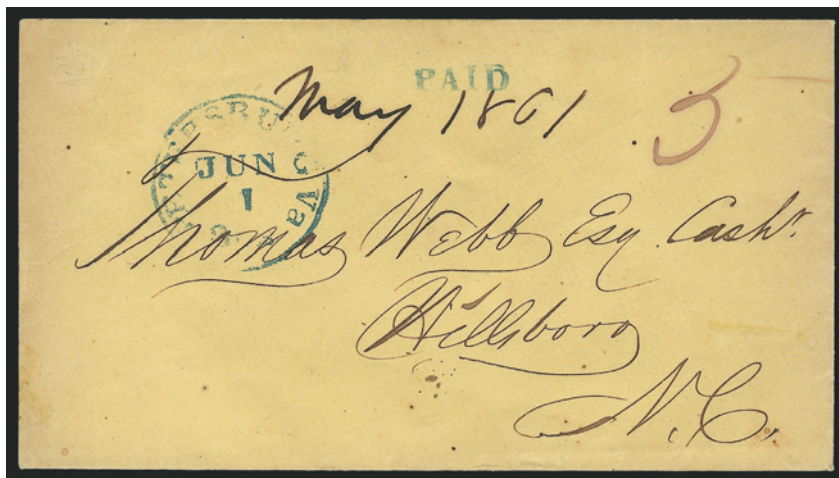 PAID
May 1861
5
PETERSBURG Va
JUN
1
Thomas Webb Esq Cashr
Hillsboro
N.C.